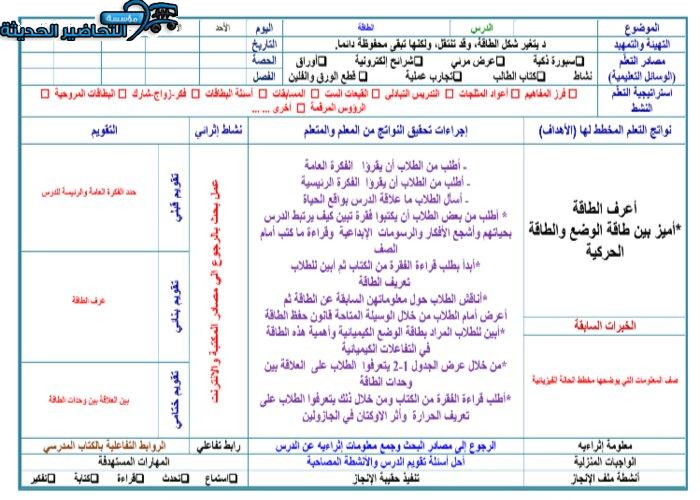 مؤسسة
التحاضير الحديثة
الموضوع الدرس الطاقة اليوم الأحد
التهيئة والتمهيد د يتغير شكل الطاقة، وقد تنتقل، ولكنها تبقى محفوظة دائما. التاريخ
مصادر التعلم سبورة ذكية عرض مرئي شرائح إلكترونية أوراق الحصة
(الوسائل التعليمية) نشاط كتاب الطالب تجارب عملية قطع الورق والفلين الفصل
استراتيجية التعلم فرز المفاهيم أعواد المثلجات التدريس التبادلي القبعات الست المسابقات أسئلة البطاقات فكر-زواج-شارك البطاقات المروحية
النشط الرؤوس المرقمة أخرى ... ...
نواتج التعلم المخطط لها (الأهداف) إجراءات تحقيق النواتج من المعلم والمتعلم نشاط إثرائي التقويم
أعرف الطاقة
*أميز بين طاقة الوضع والطاقة
الحركية
الخبرات السابقة
صف المعلومات التي يوضحها مخطط الحالة الفيزيائية
- أطلب من الطلاب أن يقرؤا الفكرة العامة
- أطلب من الطلاب أن يقرؤا الفكرة الرئيسية
- أسأل الطلاب ما علاقة الدرس بواقع الحياة
* أطلب من بعض الطلاب أن يكتبوا فقرة تبين كيف يرتبط الدرس
بحياتهم وأشجع الأفكار والرسومات الإبداعية وقراءة ما كتب أمام
الصف
*أبدأ بطلب قراءة الفقرة من الكتاب ثم أبين للطلاب
تعريف الطاقة
*أناقش الطلاب حول معلوماتهن السابقة عن الطاقة ثم
أعرض أمام الطلاب من خلال الوسيلة المتاحة قانون حفظ الطاقة
*أبين للطلاب المراد بطاقة الوضع الكيميائية وأهمية هذه الطاقة
في التفاعلات الكيميائية
*من خلال عرض الجدول 1-2 يتعرفوا الطلاب على العلاقة بين
وحدات الطاقة
*أطلب قراءة الفقرة من الكتاب ومن خلال ذلك يتعرفوا الطلاب على
تعريف الحرارة وأثر الاوكتان في الجازولين
عمل بحث بالرجوع الي مصادر المكتبة والانترنت
تقويم قبلي
حدد الفكرة العامة والرئيسة للدرس
تقويم بنائي
عرف الطاقة
تقويم ختامي
بين العلاقة بين وحدات الطاقة
معلومة إثرائيه الرجوع إلى مصادر البحث وجمع معلومات إثرائيه عن الدرس رابط تفاعلي الروابط التفاعلية بالكتاب المدرسي
الواجبات المنزلية أحل أسئلة تقويم الدرس والأنشطة المصاحبة المهارات المستهدفة
أنشطة ملف الإنجاز تنفيذ حقيبة الإنجاز استماع تحدث قراءة كتابة تفكير